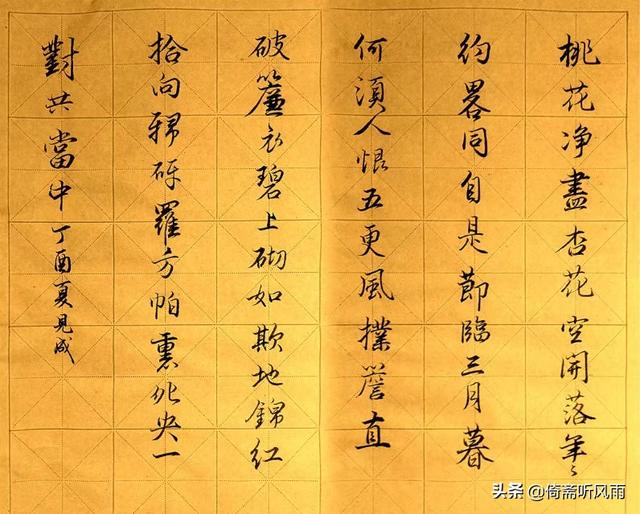 桃花净盡杏花空開落年〻
約畧同自是節臨三月暮
何須人恨五更風撲簷直
破簾衣碧上砌如欺地錦紅
拾向砑羅方帕裹央一
對共當中丁酉夏見成
头条 @倚斋听风雨